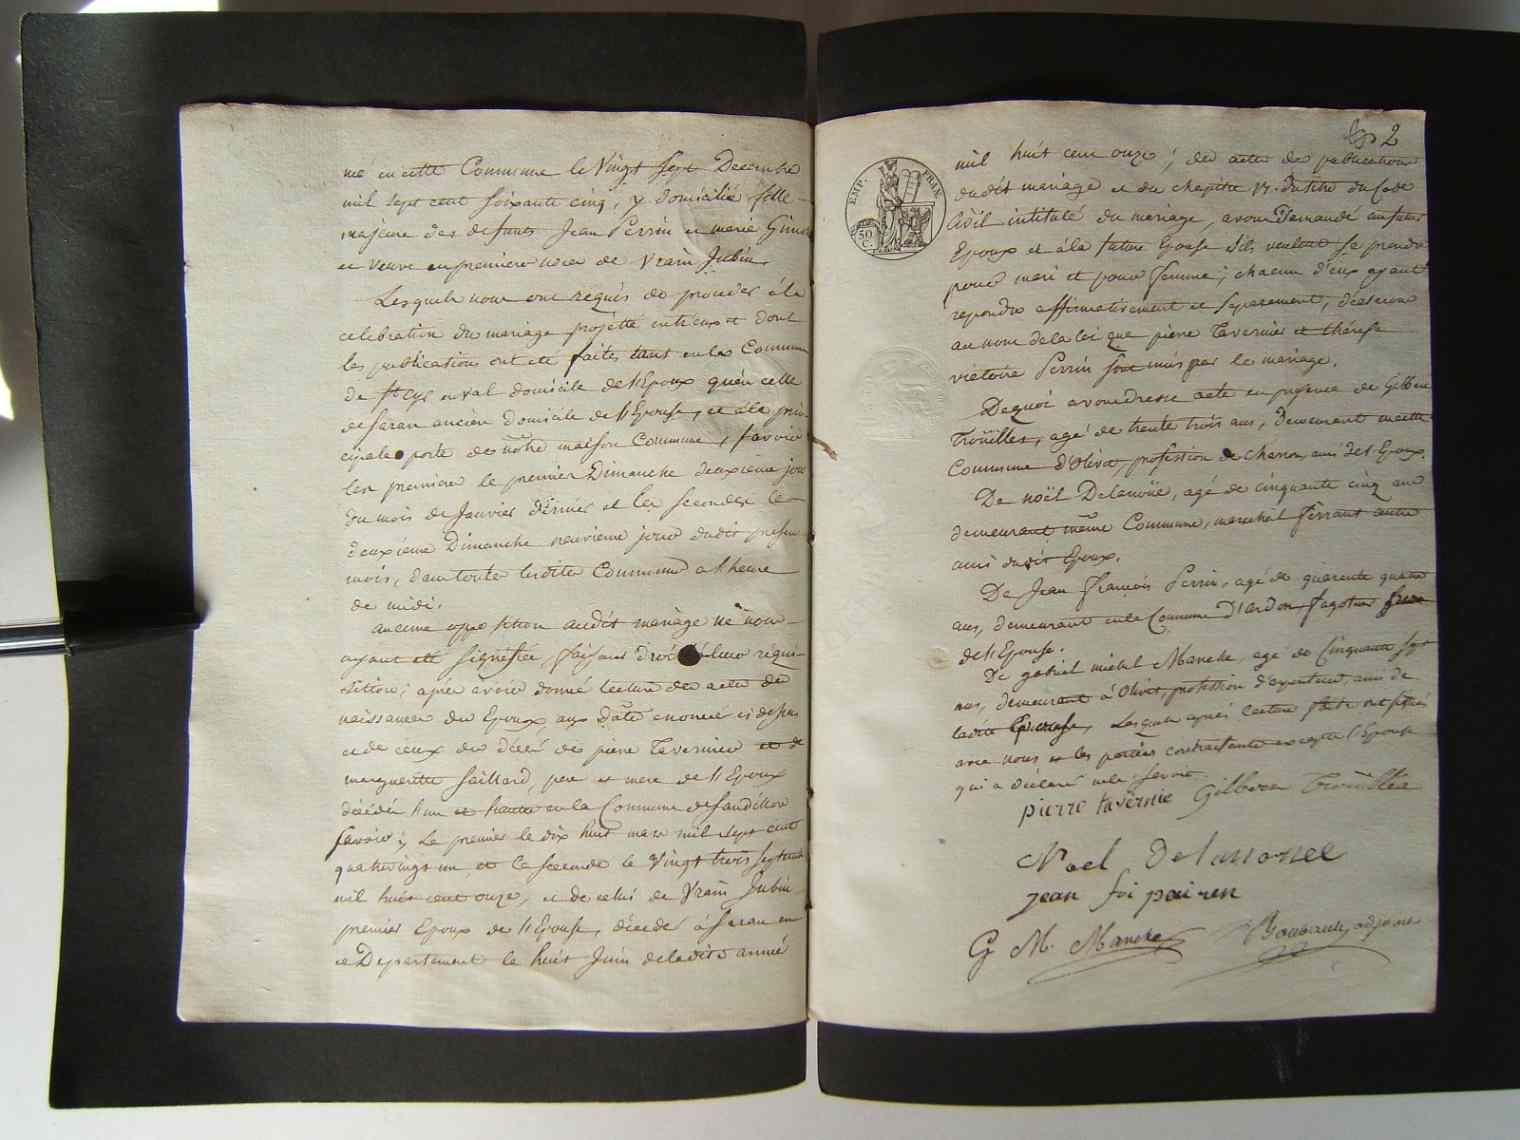 née en cette Commune le Vingt Sept Decembre
mil sept cent soixante cinq, y domiciliée fille
majeure des defunts Jean Perrin et marie
et veuve en premiere noces de Vrain Jubin.
Lesquels nous ont requis de proceder à la
celebration du mariage projetté entreux et dont
les publications ont été faites tant en la Commune
de St cyr en val domicile de l'Epoux quèn celle
de Saran ancien domicile de l'Epouse, et à la prin-
cipale porte de nôtre maison Commune, savoir
les premieres le premier Dimanche deuxieme jour
du mois de Janvier dérnier et les secondes le
deuxieme Dimanche neuvieme jour dudit present
mois, dans toutes lesdites Communes a l'heure
de midi.
aucune opposition audit mariage ne nous
ayant été signifiée, faisant droit à leur requi-
sition; après avoir donné lecture des actes de
naissances des Epoux, aux date enoncé ci dessus
et de ceux de décès de pierre Tavernier et de
marguerite Saillard, pere et mere de l'Epoux
décédés l'un et l'autre en la Commune de Sandillon
Savoir; Le premier le dix huit mars mil sept cent
quatrevingt un, et la seconde le Vingt trois septembre
mil huit cent onze, et de celui de Vrain Jubin
premier Epoux de l'Epouse, décédé à Saran en
ce Departement le huit Juin de ladite année
2
EMP. FRAN.
50 C.
mil huit cent onze; des actes de publications
dudit mariage et du chapitre VI. du titre du Code
Civil intitulé du mariage, avons Demandé au futur
Epoux et à la future Epouse S'ils veulent se prendre
pour mari et pour femme; chacun d'eux ayant
repondu affirmativement et separement, déclarons
au nom de la loi que pierre Tavernier et thérese
victoire Perrin sont unis par le mariage.
De quoi avons dressé acte en presence de Gilbert
Trouïlles, agé de trente trois ans, demeurant en cette
Commune d'Olivet, profession de charron, ami de l'Epoux.
De noël Delanoüe, agé de cinquante cinq ans
demeurant même Commune, marechal ferrant autre
ami dudit Epoux.
De Jean François Perrin, agé de quarente quatre
ans, demeurant en la Commune D'ardon, fagoteur frere
de l'Epouse.
De gabriel michel Manche, agé de Cinquante sept
ans, demeurant à Olivet, profession d'arpenteur, ami de
ladite Epouse, Lesquels après lecture faite ont signés
avec nous et les parties contractantes excepté l'Epouse
qui a déclaré ne le Savoir.
pierre tavernie Gilbert Trouïlles
Noel Delanouee
jean foi pairen
G M. Manche adjoint